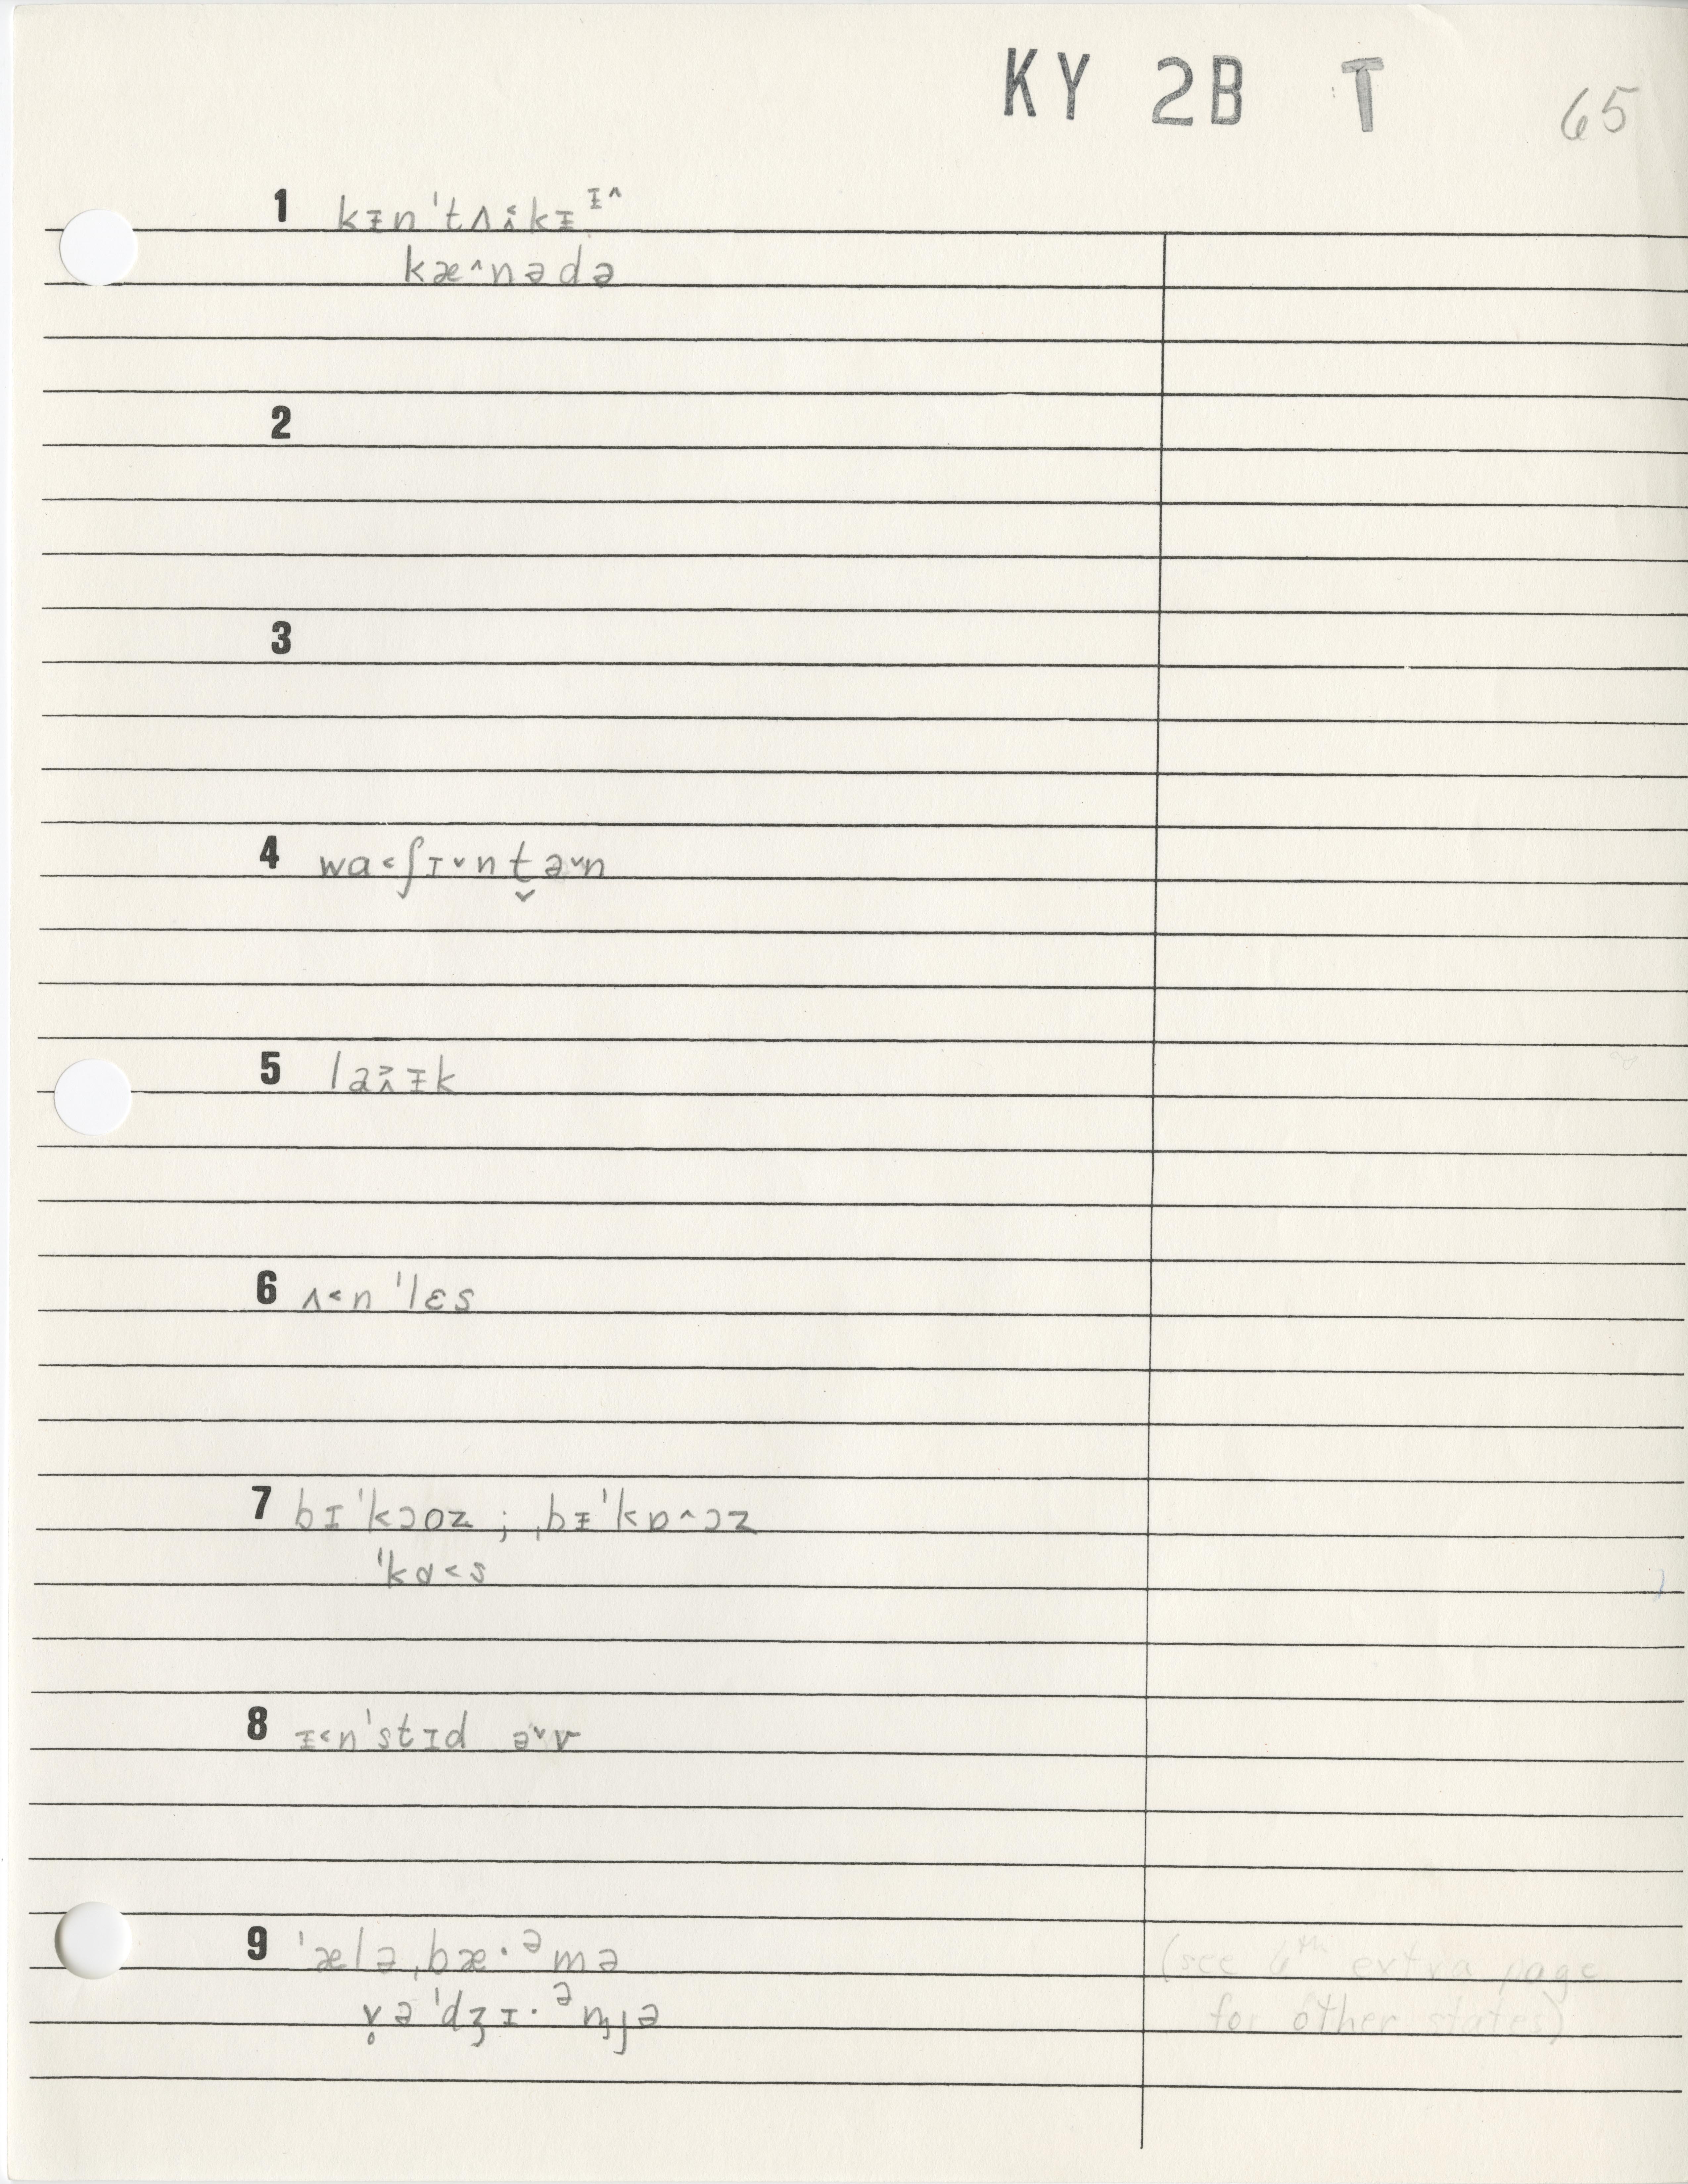 KY 2B T 65
1 kᵻn'tʌ⁽ɨkᵻᵻ^
kæ^nədə
2
3
4 wɑ<ʃɪ˅nt̬ə˅n
5 laɨᵻk
6 ʌ<n'lɛs
7 bɪ'kɔoz ; ˌbᵻ'kɒ^ɔz
'kɑ<s
8 ᵻ<n'stɪd ə˅v
9 'æləˌbæ·ᵊmə
və'dʒɪ·ᵊnjə
(see 6th extra page
for other states)